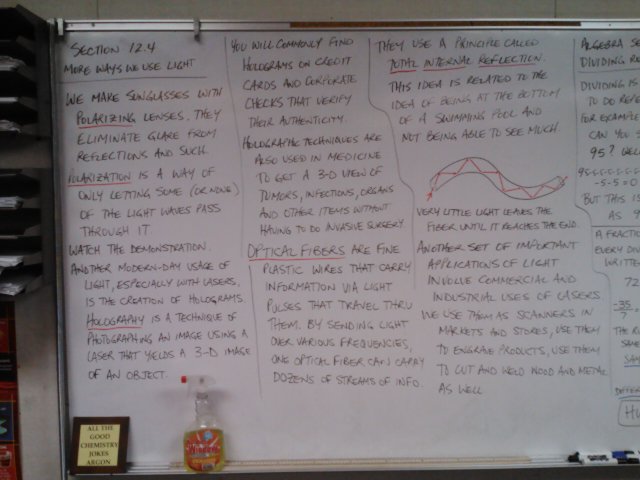 SECTION 12.4
MORE WAYS WE USE LIGHT
WE MAKE SUNGLASSES WITH
POLARIZING LENSES. THEY
ELIMINATE GLARE FROM
REFLECTIONS AND SUCH.
POLARIZATION IS A WAY OF
ONLY LETTING SOME (OR NONE)
OF THE LIGHT WAVES PASS
THROUGH IT.
WATCH THE DEMONSTRATION.
ANOTHER MODERN-DAY USAGE OF
LIGHT, ESPECIALLY WITH LASERS,
IS THE CREATION OF HOLOGRAMS.
HOLOGRAPHY IS A TECHNIQUE OF
PHOTOGRAPHING AN IMAGE USING A
LASER THAT YIELDS A 3-D IMAGE
OF AN OBJECT.
YOU WILL COMMONLY FIND
HOLOGRAMS ON CREDIT
CARDS AND CORPORATE
CHECKS THAT VERIFY
THEIR AUTHENTICITY.
HOLOGRAPHIC TECHNIQUES ARE
ALSO USED IN MEDICINE
TO GET A 3-D VIEW OF
TUMORS, INFECTIONS, ORGANS
AND OTHER ITEMS WITHOUT
HAVING TO DO INVASIVE SURGERY.
OPTICAL FIBERS ARE FINE
PLASTIC WIRES THAT CARRY
INFORMATION VIA LIGHT
PULSES THAT TRAVEL THRU
THEM. BY SENDING LIGHT
OVER VARIOUS FREQUENCIES,
ONE OPTICAL FIBER CAN CARRY
DOZENS OF STREAMS OF INFO.
THEY USE A PRINCIPLE CALLED
TOTAL INTERNAL REFLECTION.
THIS IDEA IS RELATED TO THE
IDEA OF BEING AT THE BOTTOM
OF A SWIMMING POOL AND
NOT BEING ABLE TO SEE MUCH.
VERY LITTLE LIGHT LEAVES THE
FIBER UNTIL IT REACHES THE END.
ANOTHER SET OF IMPORTANT
APPLICATIONS OF LIGHT
INVOLVE COMMERCIAL AND
INDUSTRIAL USES OF LASERS.
WE USE THEM AS SCANNERS IN
MARKETS AND STORES, USE THEM
TO ENGRAVE PRODUCTS, USE THEM
TO CUT AND WELD WOOD AND METAL
AS WELL
ALGEBRA SE
DIVIDING RO
DIVIDING IS
TO DO REPEA
FOR EXAMPLE
CAN YOU
95? WELL
-5-5=0
BUT THIS IS
AS
A FRACTIO
EVERY DOI
WRITTEN
72
-35
?
THE A
SAME
ALL THE
GOOD
CHEMISTRY
JOKES
ARGON
Windex